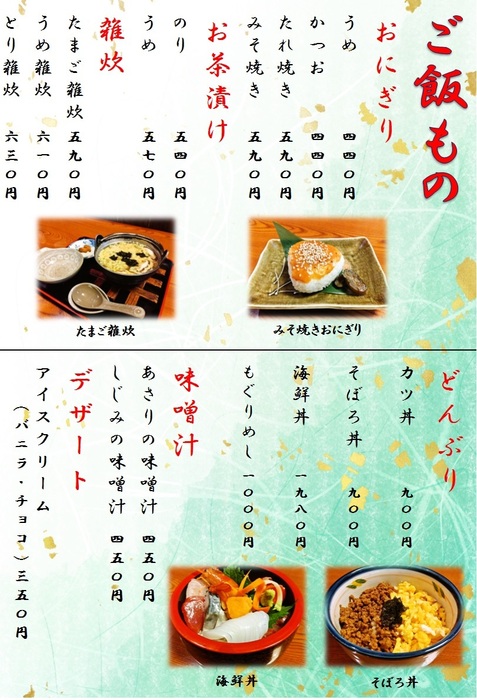 ご飯もの
おにぎり
うめ 四四〇円
かつお 四四〇円
たれ焼き 五九〇円
みそ焼き 五九〇円
お茶漬け
のり 五四〇円
うめ 五七〇円
雑炊
たまご雑炊 五九〇円
うめ雑炊 六一〇円
とり雑炊 六三〇円
みそ焼きおにぎり
たまご雑炊
どんぶり
カツ丼 九〇〇円
そぼろ丼 九〇〇円
海鮮丼 一九八〇円
もぐりめし 一〇〇〇円
味噌汁
あさりの味噌汁 四五〇円
しじみの味噌汁 四五〇円
デザート
アイスクリーム
（バニラ・チョコ）三五〇円
そぼろ丼
海鮮丼